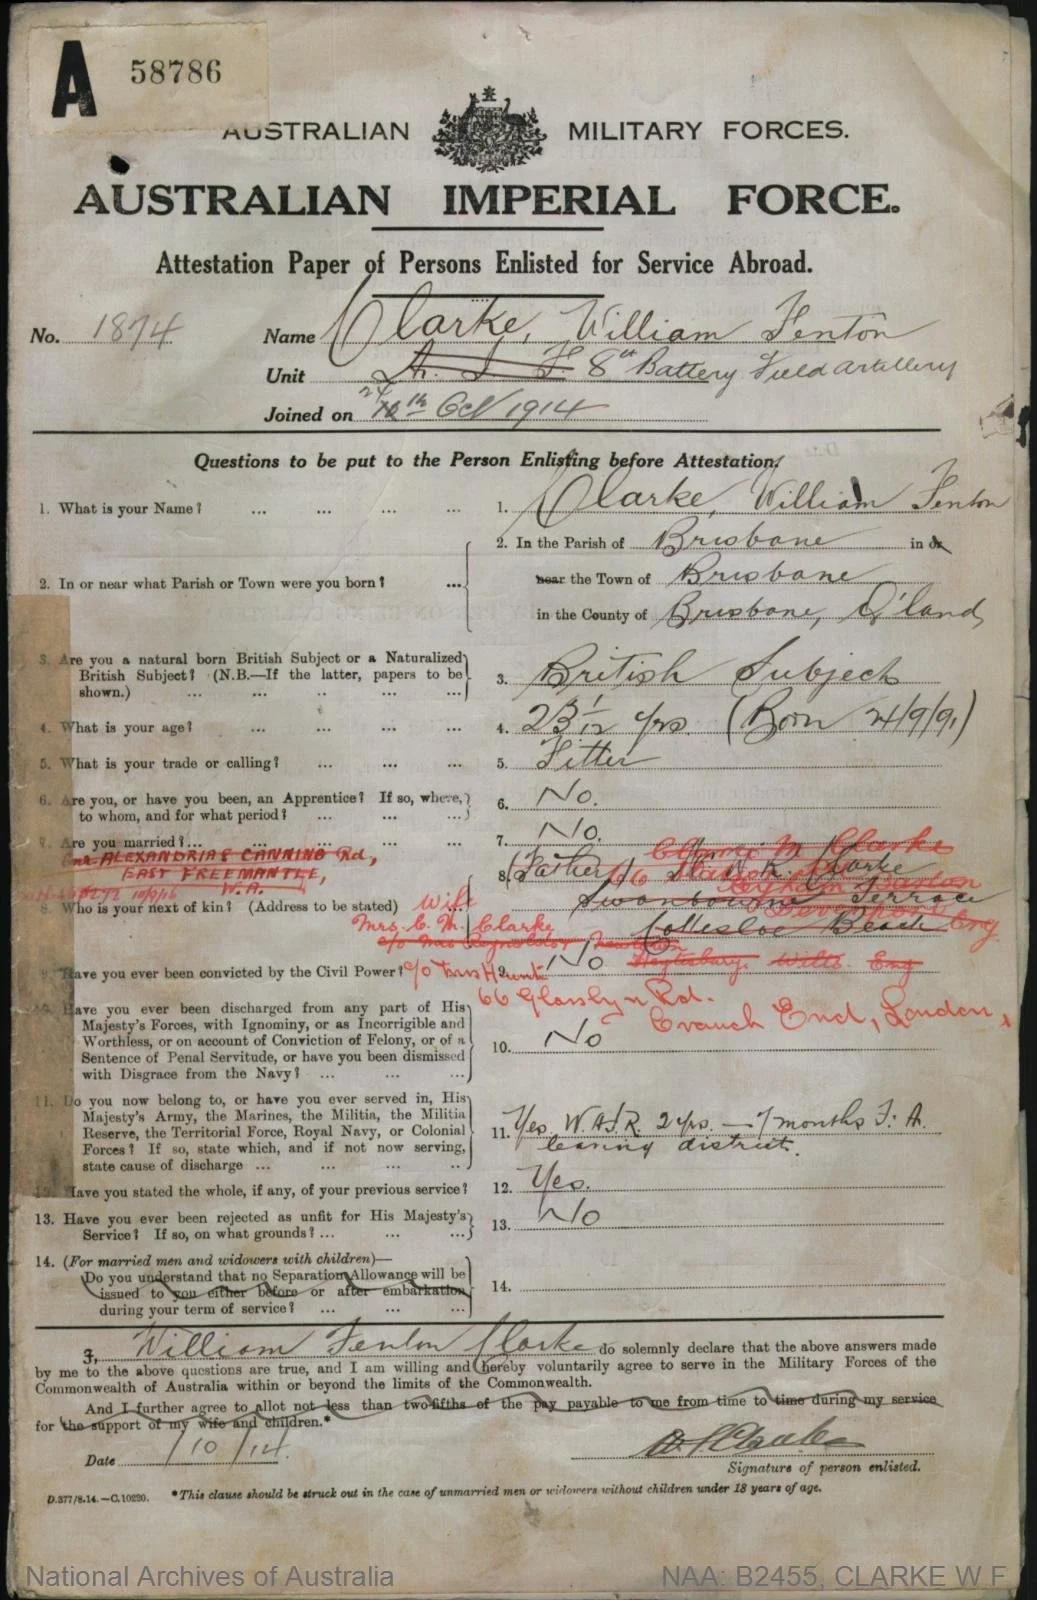 A 58786
AUSTRALIAN MILITARY FORCES.
AUSTRALIAN IMPERIAL FORCE.
Attestation Paper of Persons Enlisted for Service Abroad.
No. 1874 Name Clarke, William Fenton
Unit A. I. F. 8th Battery Field Artillery
Joined on 24 Oct 1914
Questions to be put to the Person Enlisting before Attestation.
1. What is your Name? ... ... ... ... 1. Clarke, William Fenton
2. In the Parish of Brisbane in or
2. In or near what Parish or Town were you born? ... near the Town of Brisbane
in the County of Brisbane, Q'land
3. Are you a natural born British Subject or a Naturalized
British Subject? (N.B.—If the latter, papers to be 3. British Subject
shown.) ... ... .. ... ...
4. What is your age? ... ... ... 4. 23 1/12 yrs. (Born 24/9/91)
5. What is your trade or calling? ... ... ... 5. Fitter
6. Are you, or have you been, an Apprentice? If so, where, 6. No.
to whom, and for what period? ... ... ...
7. Are you married?... ... ... ... ... 7. No.
Cnr ALEXANDRIA & CANNING Rd, M Clarke
EAST FREEMANTLE, 8. (Father) 66 K. Clarke
W.A. Swanbourne Terrace
8. Who is your next of kin? (Address to be stated) Wife
Mrs. C. M. Clarke Cottesloe Beach Eng
c/o Mrs Reynolds
9. Have you ever been convicted by the Civil Power? c/o Mrs Hunt 9. No Heytesbury Wilts Eng
66 Glasslyn Rd.
Crouch End, London,
10. Have you ever been discharged from any part of His
Majesty's Forces, with Ignominy, or as Incorrigible and
Worthless, or on account of Conviction of Felony, or of a 10. No
Sentence of Penal Servitude, or have you been dismissed
with Disgrace from the Navy? ... ... ...
11. Do you now belong to, or have you ever served in, His
Majesty's Army, the Marines, the Militia, the Militia
Reserve, the Territorial Force, Royal Navy, or Colonial 11. Yes. W.A.I.R. 2 yrs. — 7 months F. A.
Forces? If so, state which, and if not now serving, leaving district.
state cause of discharge ... ... ... ..
12. Have you stated the whole, if any, of your previous service? 12. Yes.
13. Have you ever been rejected as unfit for His Majesty's 13. No
Service? If so, on what grounds? ... ... ...
14. (For married men and widowers with children)—
Do you understand that no Separation Allowance will be
issued to you either before or after embarkation 14.
during your term of service? ... ... ...
I, William Fenton Clarke do solemnly declare that the above answers made
by me to the above questions are true, and I am willing and hereby voluntarily agree to serve in the Military Forces of the
Commonwealth of Australia within or beyond the limits of the Commonwealth.
And I further agree to allot not less than two-fifths of the pay payable to me from time to time during my service
for the support of my wife and children.*
Date /10/14. W. F. Clarke
Signature of person enlisted.
D.377/8.14.—C.10220. *This clause should be struck out in the case of unmarried men or widowers without children under 18 years of age.
National Archives of Australia NAA: B2455, CLARKE W F